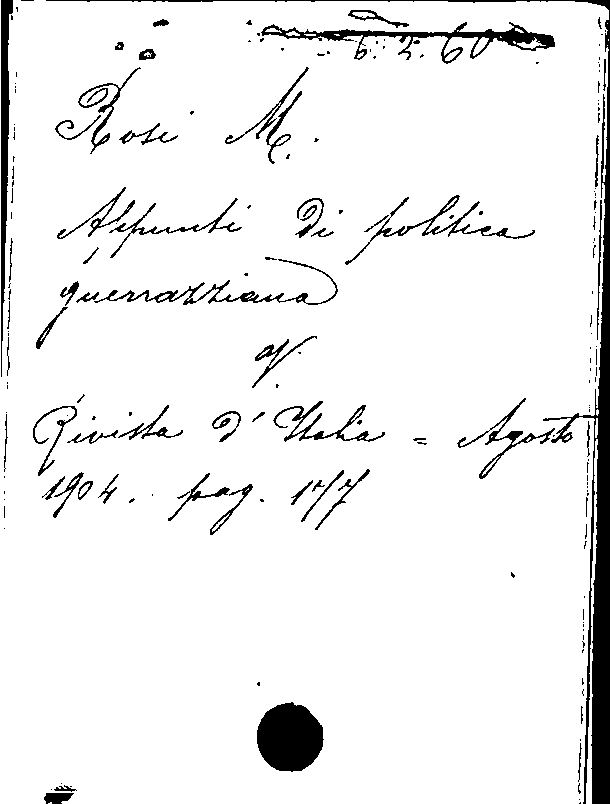 6.2.60
Rosi M.
Appunti di politica
guerrazziana
v.
Rivista d'Italia = Agosto
1904. pag. 177